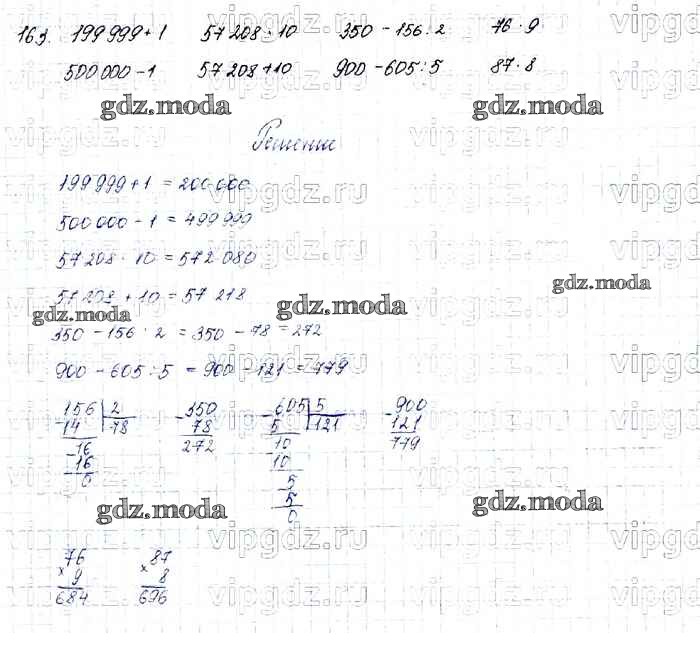 163. 199 999 + 1 57 208 · 10 350 - 156 : 2 76 · 9
500 000 - 1 57 208 + 10 900 - 605 : 5 87 · 8
gdz.moda gdz.moda
Решение
199 999 + 1 = 200 000
500 000 - 1 = 499 999
57 208 · 10 = 572 080
57 208 + 10 = 57 218
gdz.moda gdz.moda gdz.moda
350 - 156 : 2 = 350 - 78 = 272
900 - 605 : 5 = 900 - 121 = 779
156 | 2 - 350 - 605 | 5 - 900
- 14 | 78 78 5 | 121 121
- 16 272 - 10 779
16 10
0 - 5
5
0
gdz.moda gdz.moda
76 87
× 9 × 8
684 696
vipgdz.ru